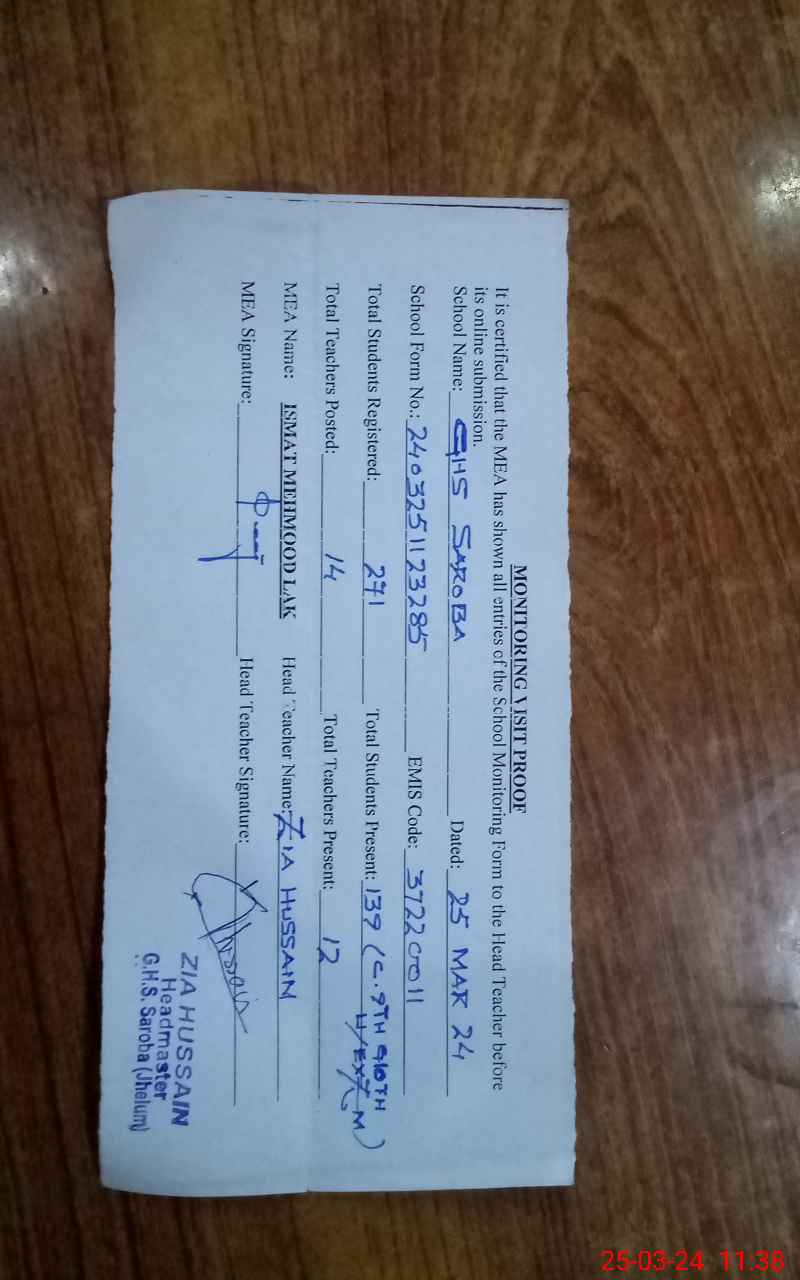 MONITORING VISIT PROOF
It is certified that the MEA has shown all entries of the School Monitoring Form to the Head Teacher before
its online submission.
School Name: GHS SAROBA Dated: 25 MAR 24
School Form No.: 2403251123285 EMIS Code: 37220011
Total Students Registered: 271 Total Students Present: 139 (C. 9TH &10TH
Total Teachers Posted: 14 Total Teachers Present: 12
MEA Name: ISMAT MEHMOOD LAK Head Teacher Name: ZIA HUSSAIN
MEA Signature: Head Teacher Signature:
ZIA HUSSAIN
Headmaster
G.H.S. Saroba (Jhelum)
25-03-24 11:38